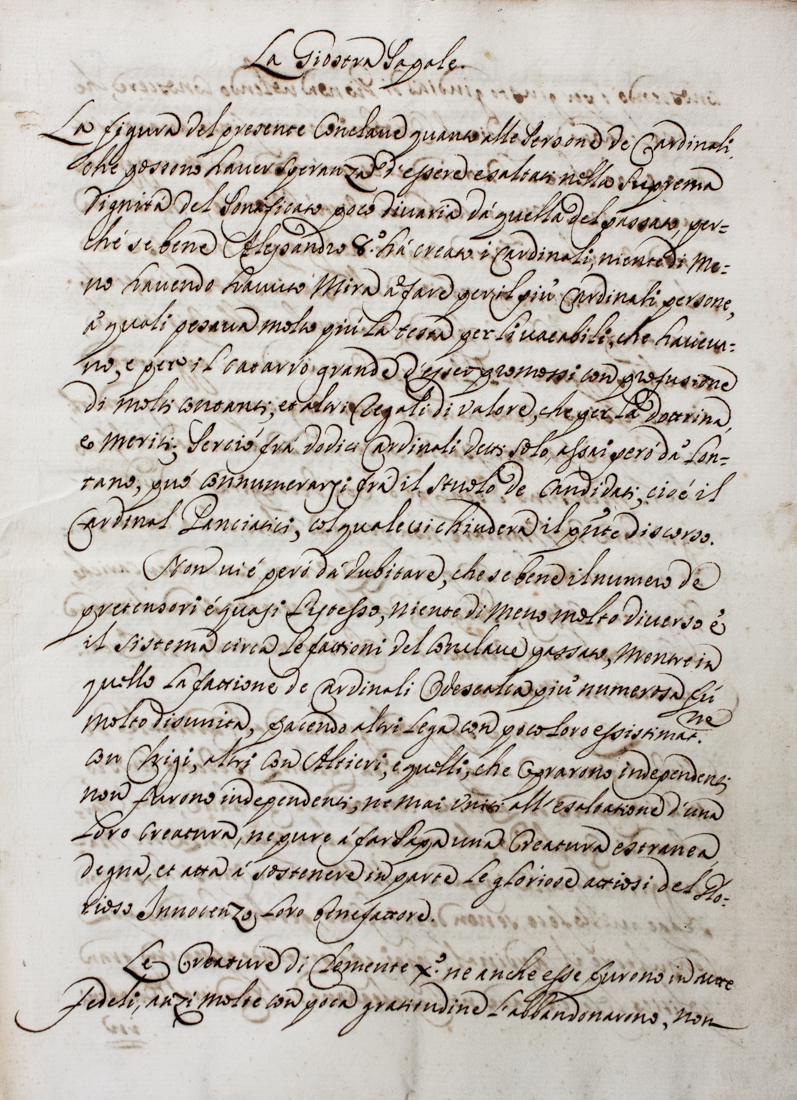 La Giostra Papale.
La figura del presente Conclave quanto alle Persone de Cardinali,
che possono haver speranza d'essere esaltati nella suprema
Dignità del Ponteficato poco divaria dà quella del passato, per=
ché se bene Alessandro 8.º hà creato i Cardinali, niente di Me=
no havendo havuto Mira à fare per il più Cardinali persone,
à quali pesava molto più la testa per li vacabili, che haveva=
no, e per il Catarro grande d'esser promossi con profusione
di molti contanti, et altri regali di valore, che per la Dottrina,
e Meriti; Perciò frà dodici Cardinali detti solo assai però dà lon=
tano, può connumerarsi frà il stuolo de Candidati, cioè il
Cardinal Panciatici, col quale si chiuderà il pñte discorso.
Non vi é però dà dubitare, che se bene il numero de
pretensori é quasi l'istesso, niente di Meno molto diverso é
il sistema circa le fattioni del Conclave passato, Mentre in
quello la fattione de Cardinali Odescalca più numerosa fù
molto disunita, facendo altri lega con poco loro essistimat.ne
con Chigi, altri con Altieri, e quelli, che egrarono independenti
non furono independenti, ne mai uniti all'esaltatione d'una
loro Creatura, ne pure à far Papa una Creatura estranea,
degna, et atta à sostenere in parte le gloriose attiosi del Glo=
rioso Innocenzo loro benefattore.
Le Creature di Clemente X.º ne anche esse furono in tutte
Fedeli, anzi molte con poca gratitudine l'abbandonarono, non